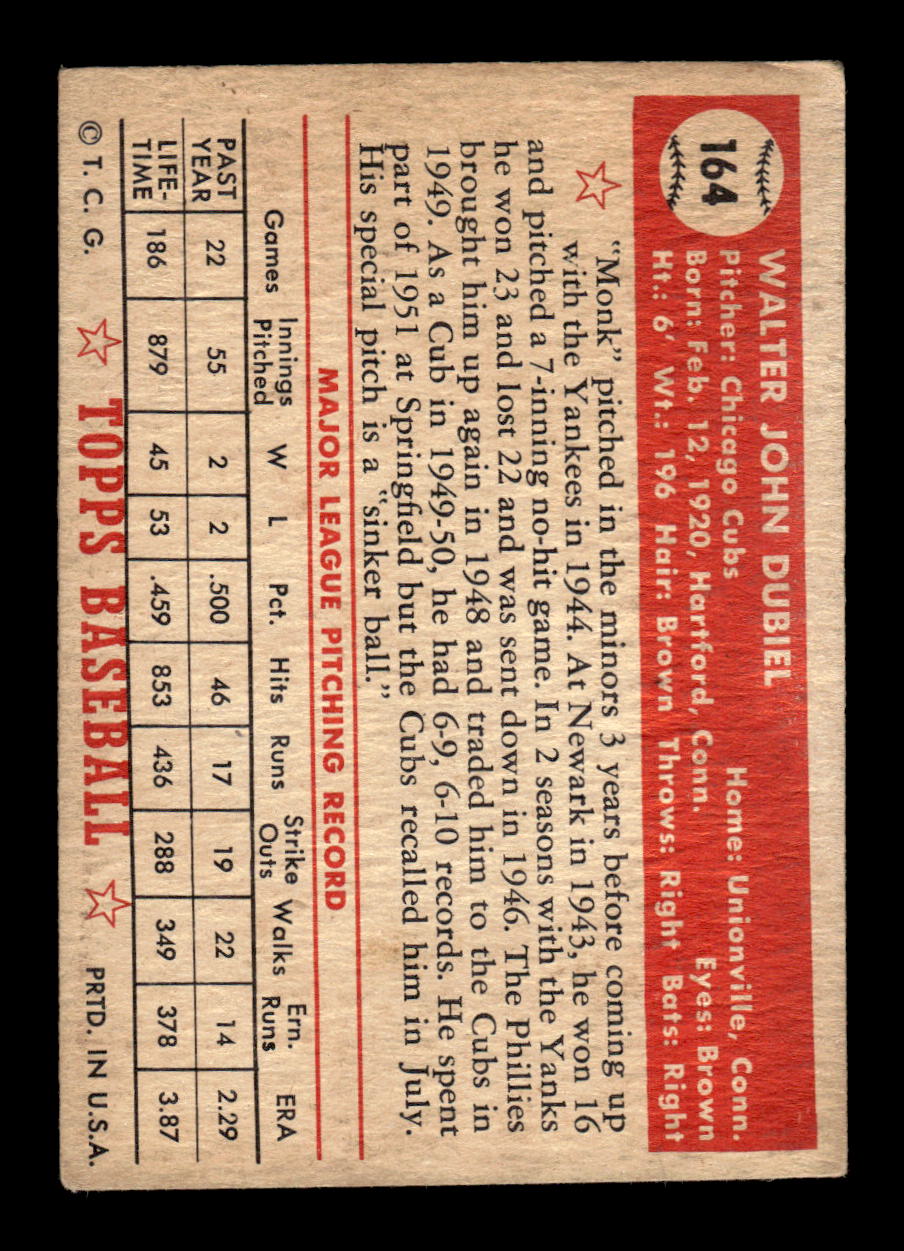 164
WALTER JOHN DUBIEL
Pitcher: Chicago Cubs Home: Unionville, Conn.
Born: Feb. 12, 1920, Hartford, Conn. Eyes: Brown
Ht.: 6' Wt.: 196 Hair: Brown Throws: Right Bats: Right
"Monk" pitched in the minors 3 years before coming up
with the Yankees in 1944. At Newark in 1943, he won 16
and pitched a 7-inning no-hit game. In 2 seasons with the Yanks
he won 23 and lost 22 and was sent down in 1946. The Phillies
brought him up again in 1948 and traded him to the Cubs in
1949. As a Cub in 1949-50, he had 6-9, 6-10 records. He spent
part of 1951 at Springfield but the Cubs recalled him in July.
His special pitch is a "sinker ball."
MAJOR LEAGUE PITCHING RECORD
Games Innings Pitched W L Pct. Hits Runs Strike Outs Walks Ern. Runs ERA
PAST YEAR 22 55 2 2 .500 46 17 19 22 14 2.29
LIFE-TIME 186 879 45 53 .459 853 436 288 349 378 3.87
© T. C. G. TOPPS BASEBALL PRTD. IN U.S.A.